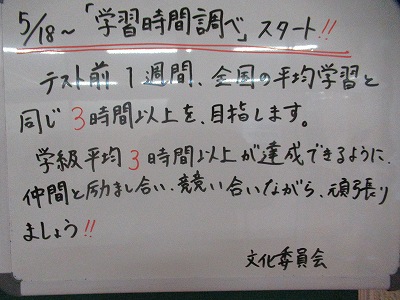 5/18〜「学習時間調べ」スタート!!
テスト前1週間、全国の平均学習と
同じ3時間以上を、目指します。
学級平均3時間以上が達成できるように、
仲間と励まし合い、競い合いながら、頑張り
ましょう!!
文化委員会